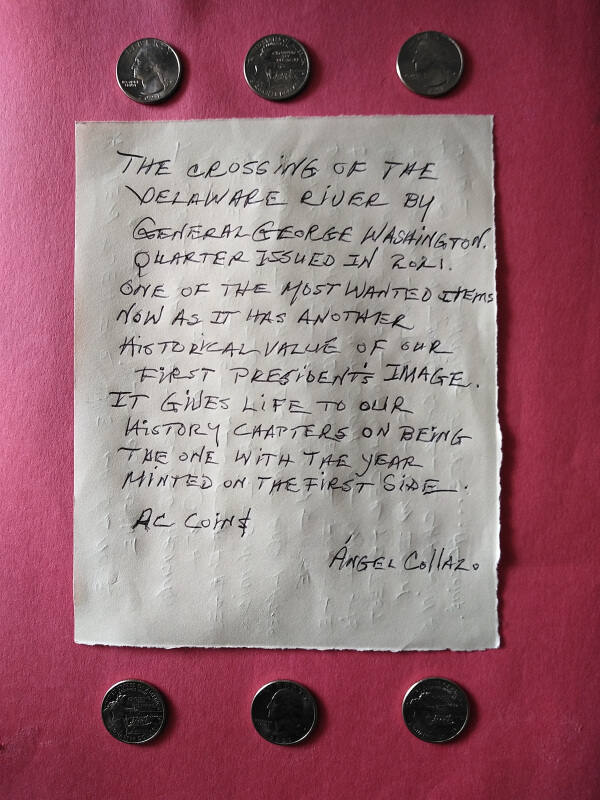 THE CROSSING OF THE
DELAWARE RIVER BY
GENERAL GEORGE WASHINGTON.
QUARTER ISSUED IN 2021.
ONE OF THE MOST WANTED ITEMS
NOW AS IT HAS ANOTHER
HISTORICAL VALUE OF OUR
FIRST PRESIDENT'S IMAGE.
IT GIVES LIFE TO OUR
HISTORY CHAPTERS ON BEING
THE ONE WITH THE YEAR
MINTED ON THE FIRST SIDE.
AC COIN$
ÁNGEL COLLAZO